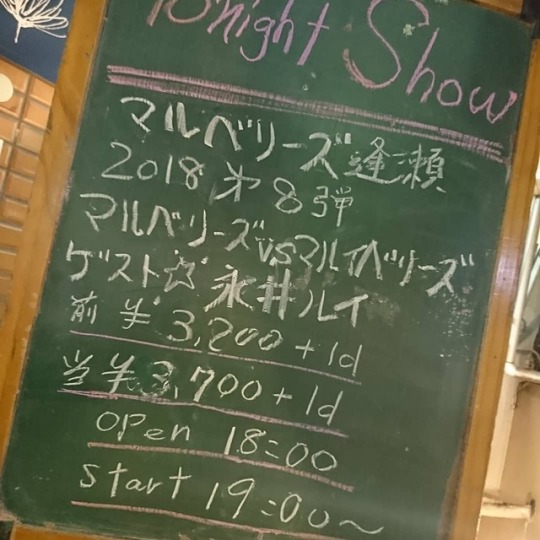 Tonight Show
マルベリーズ逢瀬
2018 才8弾
マルベリーズvsマルイベリーズ
ゲスト☆永井ルイ
前半3,200+1d
当半3,700+1d
open 18:00
start 19:00〜